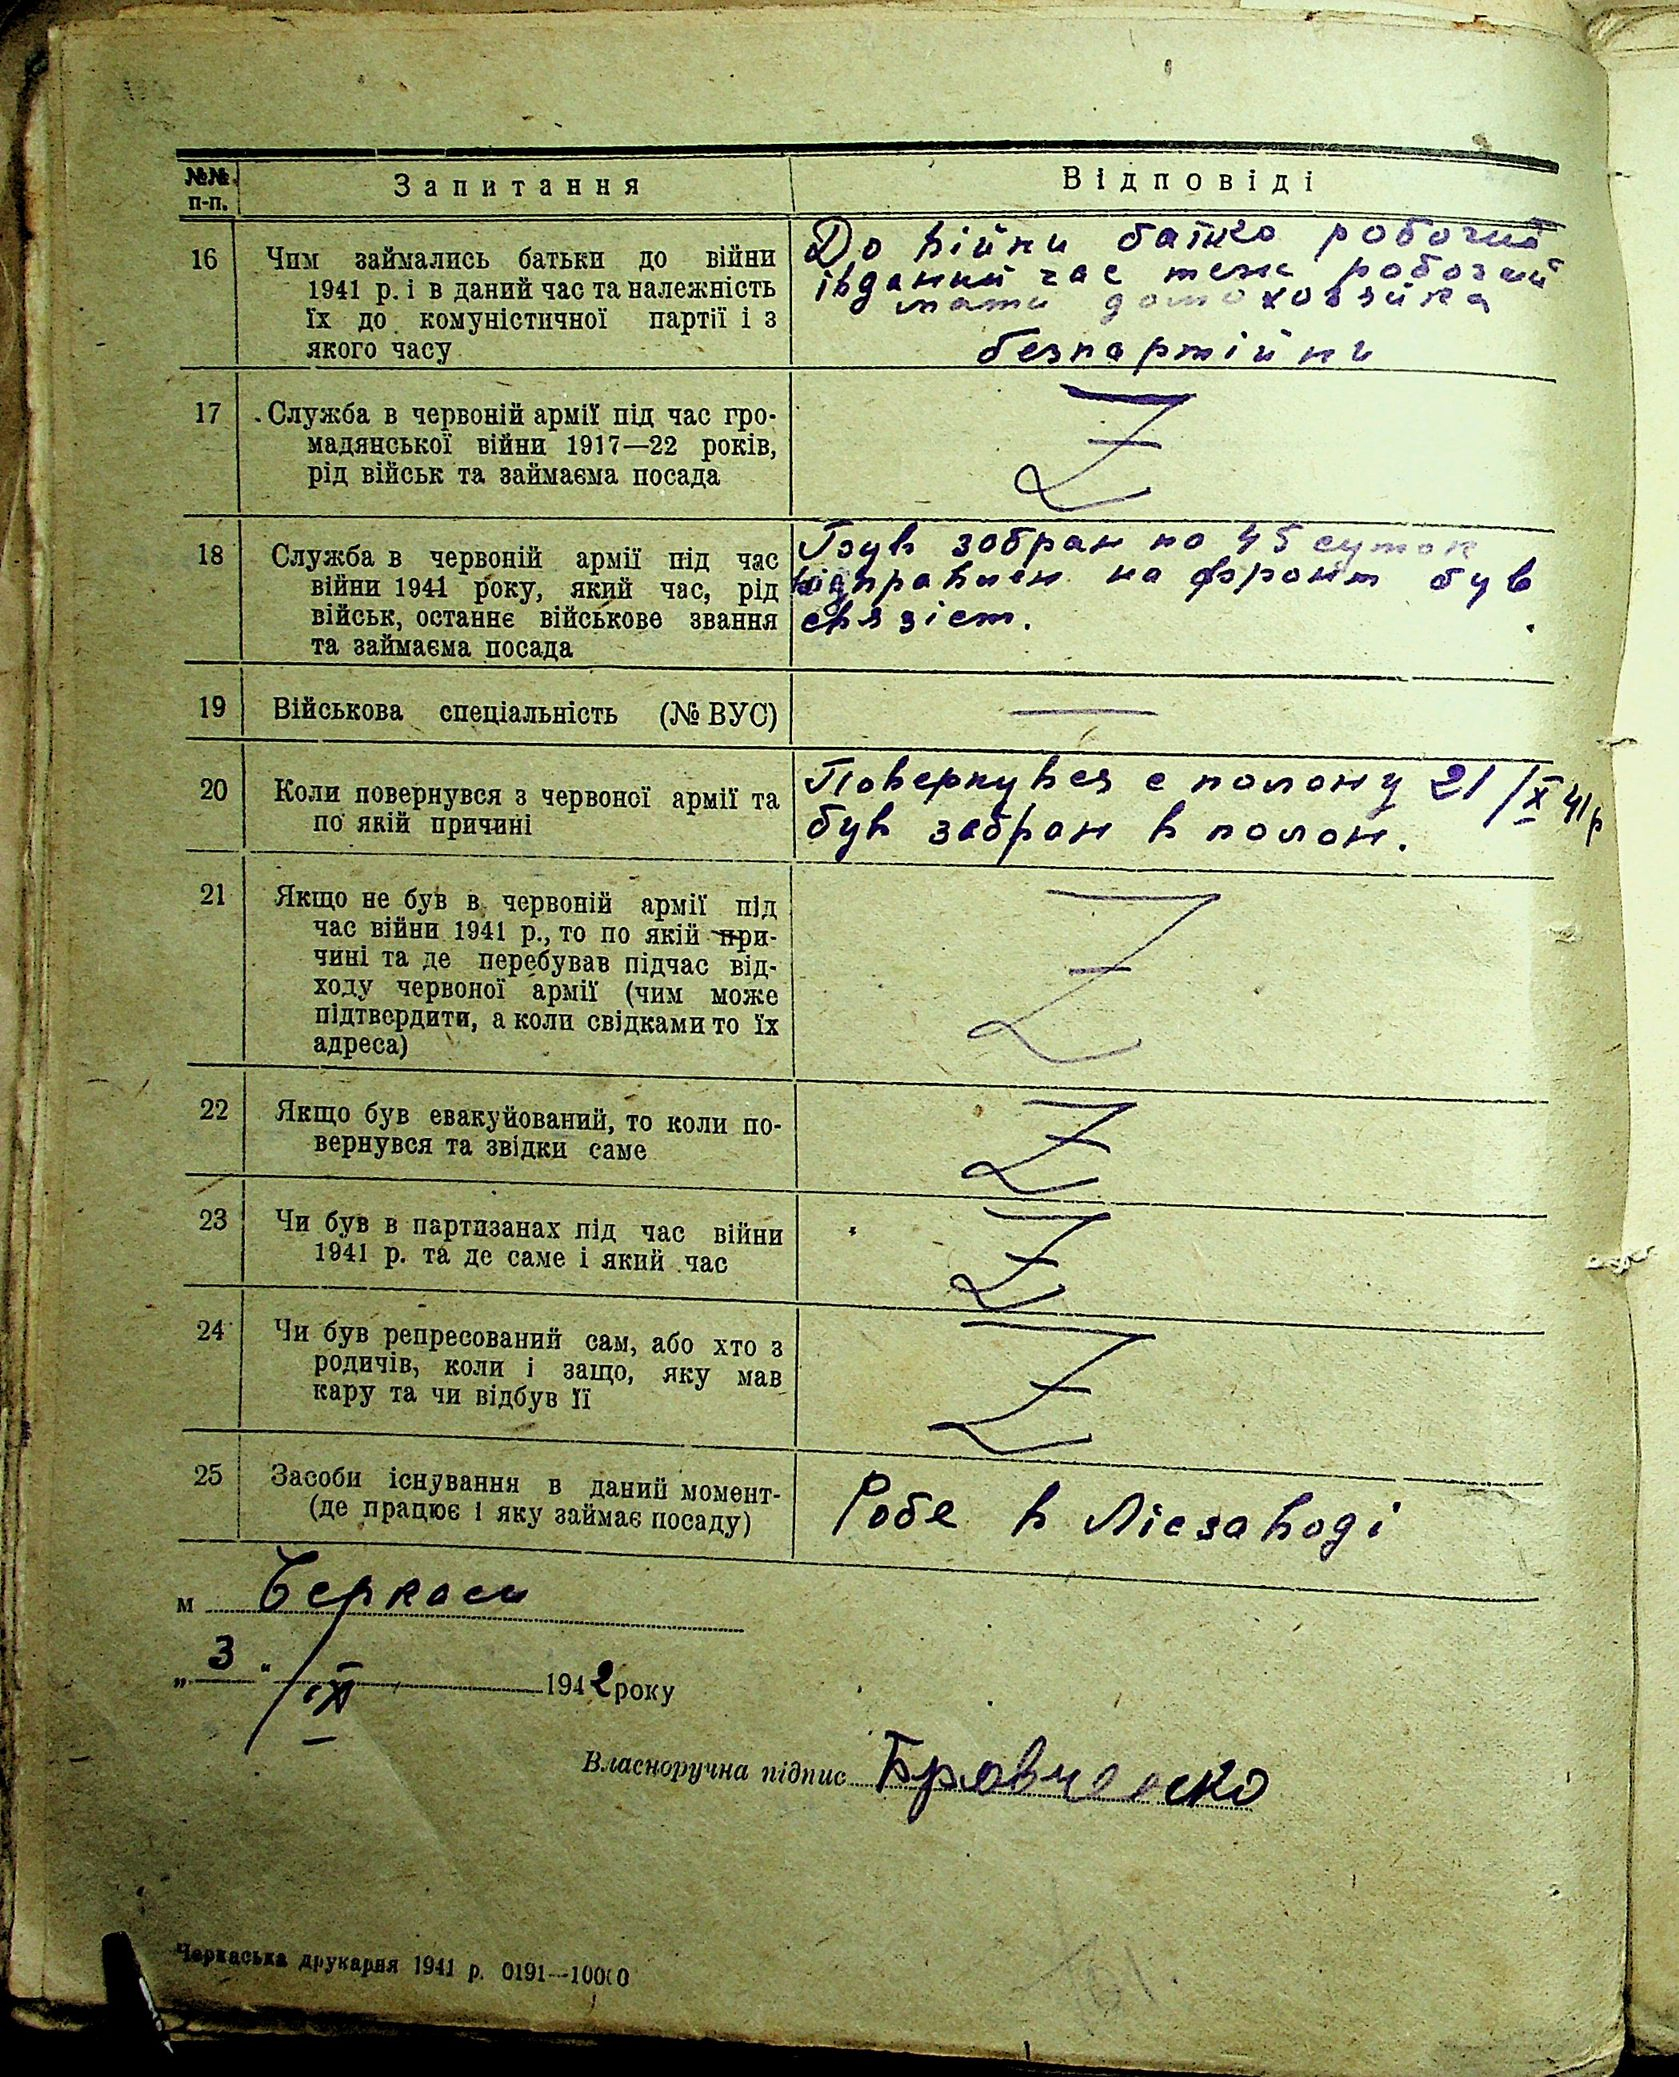 №№ п-п.
Запитання
Відповіді
16
Чим займались батьки до війни
1941 р. і в даний час та належність
їх до комуністичної партії і з
якого часу
До війни батько робочий
івданий час теж робочий
мати домохозяйка
безпартійни
17
Служба в червоній армії під час гро-
мадянської війни 1917—22 років,
рід військ та займаєма посада
Z
18
Служба в червоній армії під час
війни 1941 року, який час, рід
військ, останнє військове звання
та займаєма посада
був забран по 45 суток
відправлен на фронт був
связіст.
19
Військова спеціальність (№ ВУС)
—
20
Коли повернувся з червоної армії та
по якій причині
Повернувся с полону 21/X 41 р
був забран в полон.
21
Якщо не був в червоній армії під
час війни 1941 р., то по якій при-
чині та де перебував підчас від-
ходу червоної армії (чим може
підтвердити, а коли свідками то їх
адреса)
Z
22
Якщо був евакуйований, то коли по-
вернувся та звідки саме
Z
23
Чи був в партизанах під час війни
1941 р. та де саме і який час
Z
24
Чи був репресований сам, або хто з
родичів, коли і защо, яку мав
кару та чи відбув її
Z
25
Засоби існування в даний момент-
(де працює і яку займає посаду)
Робе в Лісзаводі
м Черкаси
„ 3 " / IX 1942 року
Власноручна підпис Бравченско
Черкаська друкарня 1941 р. 0191—10000